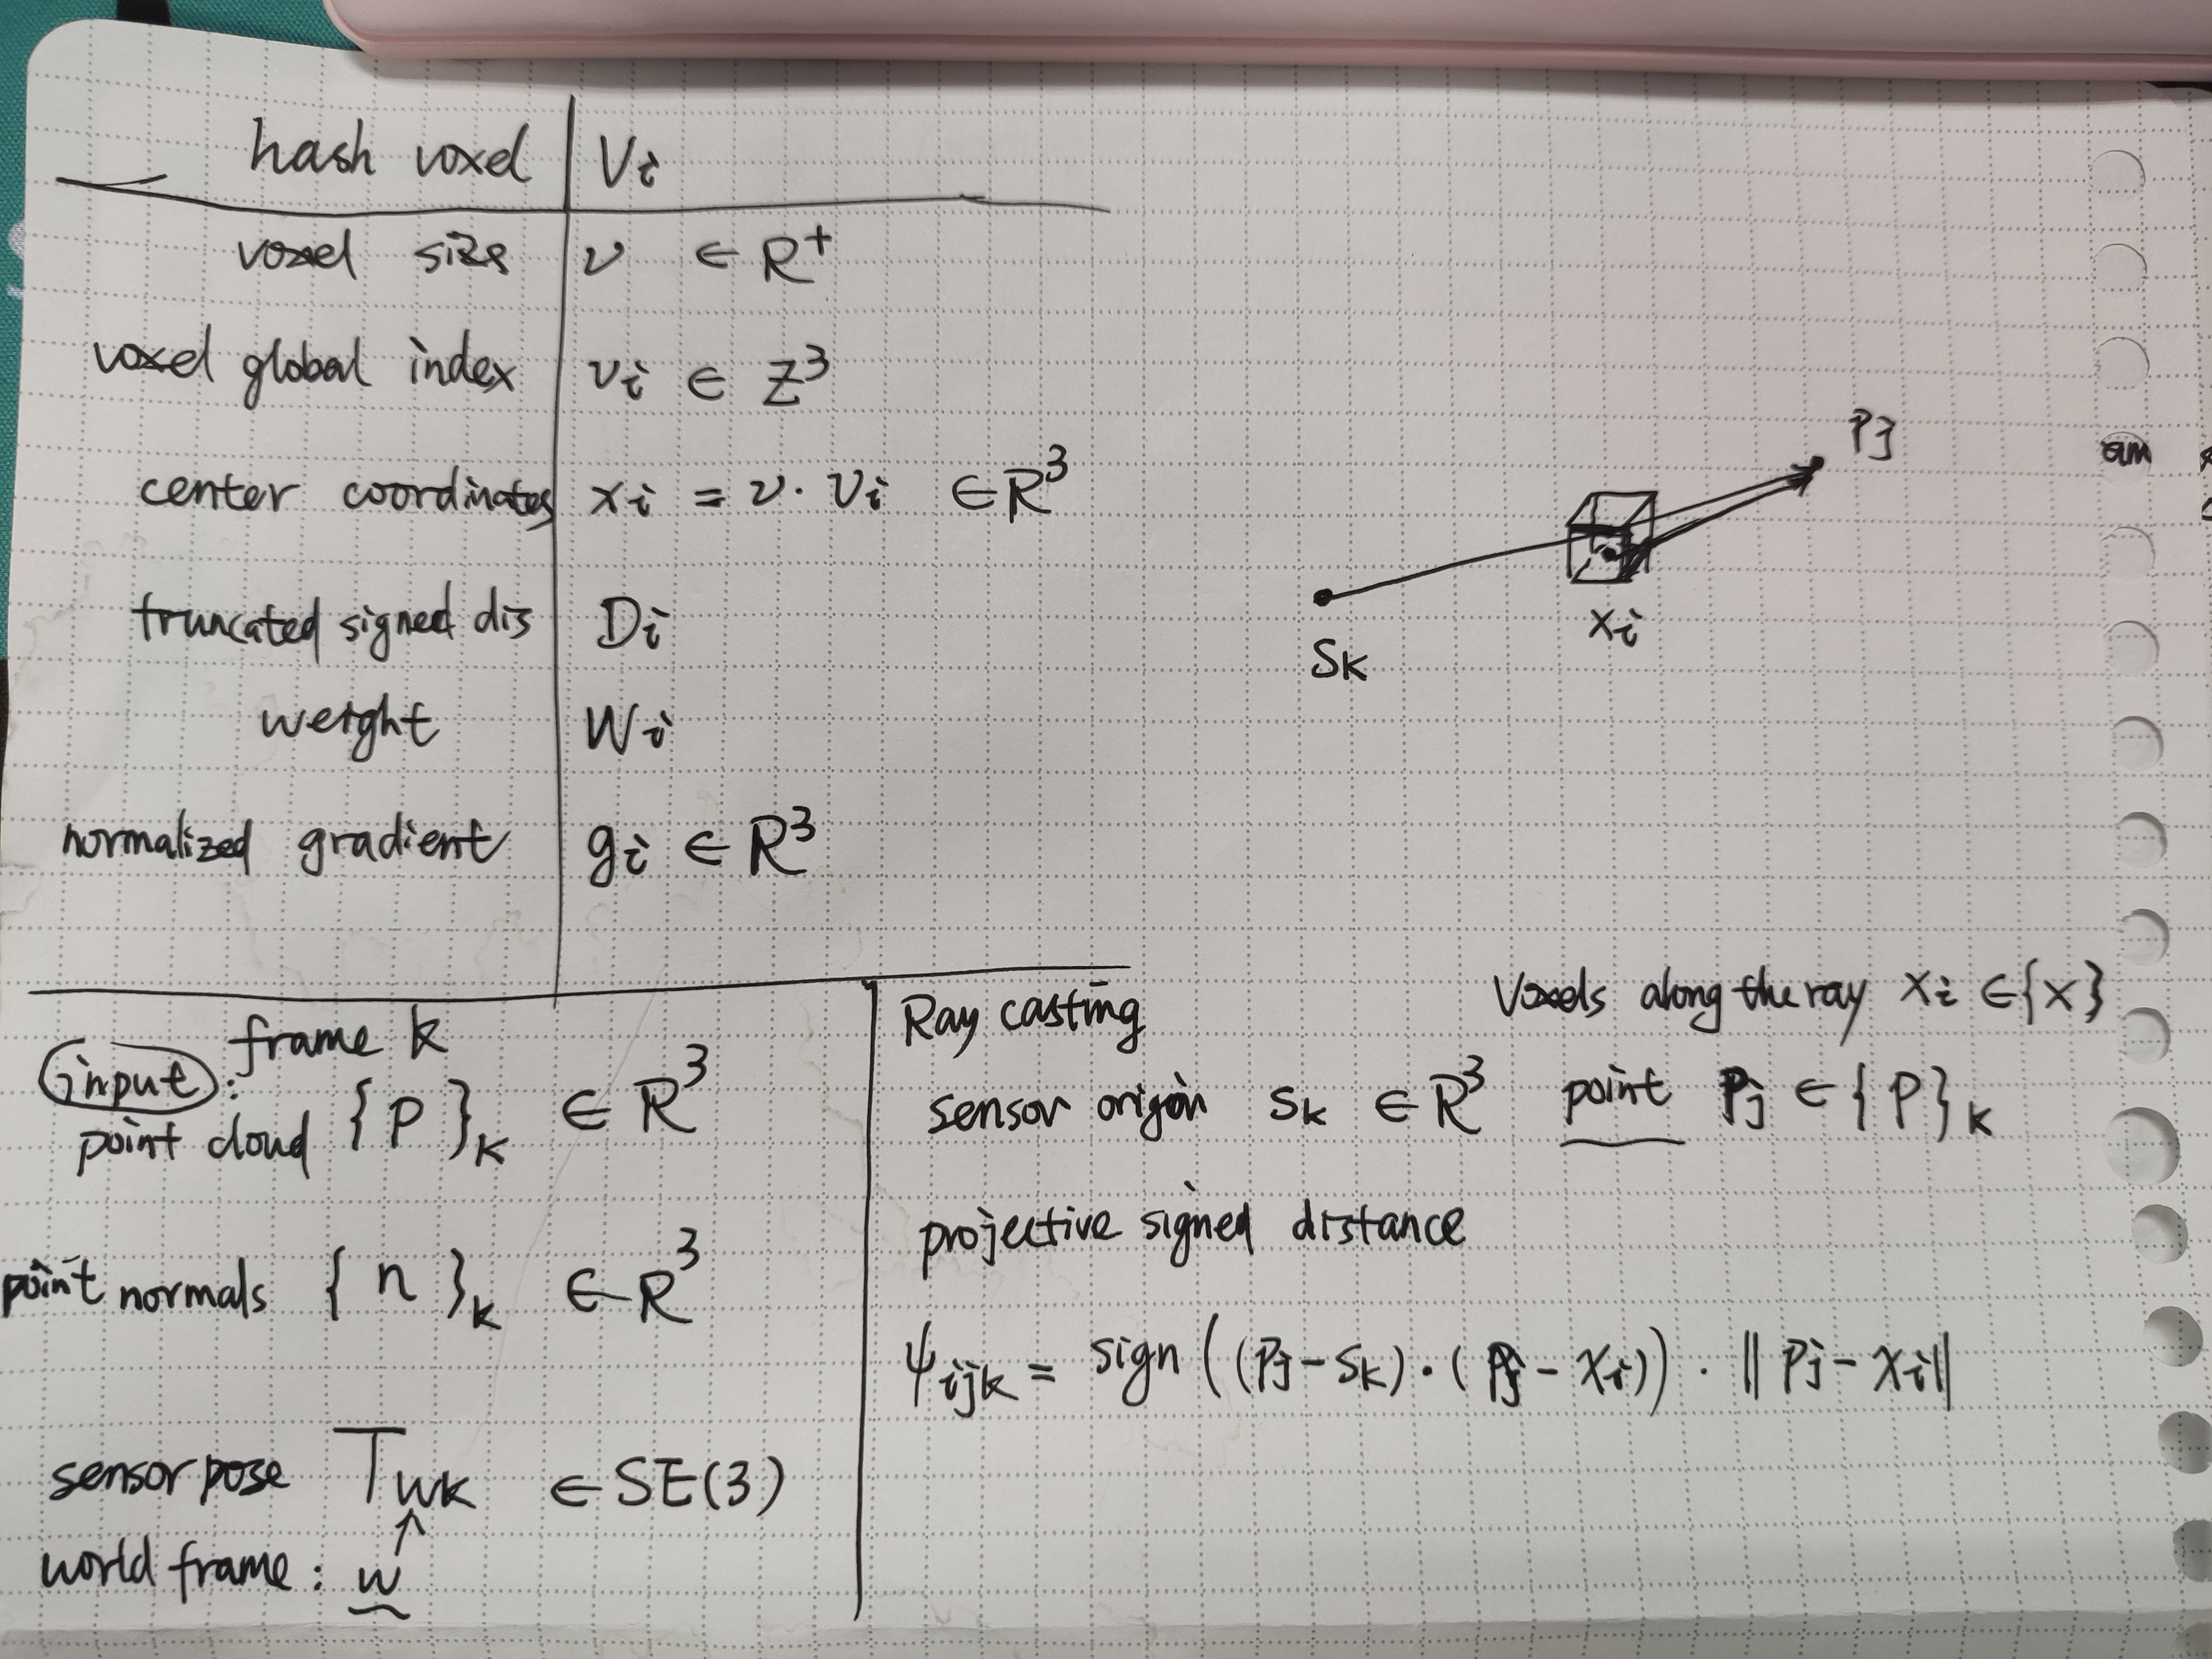 hash voxel Vi
voxel size ν ∈ R⁺
voxel global index vi ∈ Z³
center coordinates xi = ν · vi ∈ R³
truncated signed dis Di
weight Wi
normalized gradient gi ∈ R³
Pj
Sk
Xi
am
frame k
input:
point cloud {P}k ∈ R³
point normals {n}k ∈ R³
sensor pose Twk ∈ SE(3)
world frame: w
Ray casting
Voxels along the ray Xi ∈ {X}
sensor origin Sk ∈ R³ point Pj ∈ {P}k
projective signed distance
ψijk = sign((Pj − Sk) · (Pj − Xi)) · ‖Pj − Xi‖